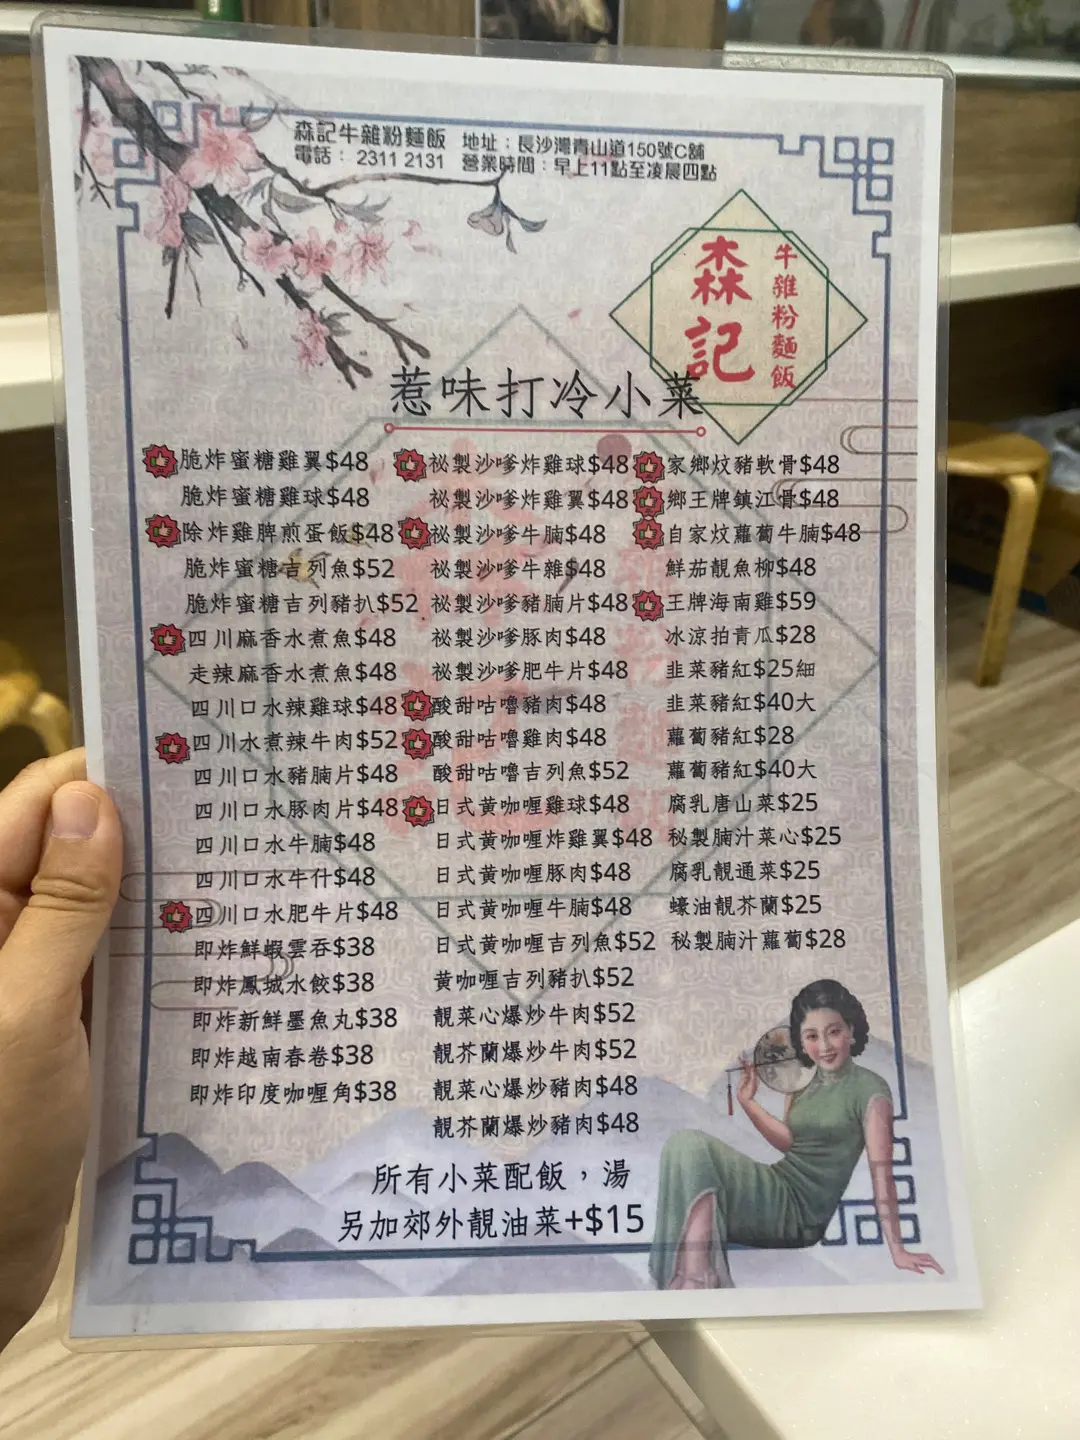 森記牛雜粉麵飯 地址：長沙灣青山道150號C舖
電話： 2311 2131 營業時間：早上11點至凌晨四點
森記
牛雜粉麵飯
惹味打冷小菜
脆炸蜜糖雞翼$48
脆炸蜜糖雞球$48
除炸雞脾煎蛋飯$48
脆炸蜜糖吉列魚$52
脆炸蜜糖吉列豬扒$52
四川麻香水煮魚$48
走辣麻香水煮魚$48
四川口水辣雞球$48
四川水煮辣牛肉$52
四川口水豬腩片$48
四川口水豚肉片$48
四川口水牛腩$48
四川口水牛什$48
四川口水肥牛片$48
即炸鮮蝦雲吞$38
即炸鳳城水餃$38
即炸新鮮墨魚丸$38
即炸越南春卷$38
即炸印度咖喱角$38
祕製沙嗲炸雞球$48
祕製沙嗲炸雞翼$48
祕製沙嗲牛腩$48
祕製沙嗲牛雜$48
祕製沙嗲豬腩片$48
祕製沙嗲豚肉$48
祕製沙嗲肥牛片$48
酸甜咕嚕豬肉$48
酸甜咕嚕雞肉$48
酸甜咕嚕吉列魚$52
日式黄咖喱雞球$48
日式黄咖喱炸雞翼$48
日式黄咖喱豚肉$48
日式黄咖喱牛腩$48
日式黄咖喱吉列魚$52
黄咖喱吉列豬扒$52
靚菜心爆炒牛肉$52
靚芥蘭爆炒牛肉$52
靚菜心爆炒豬肉$48
靚芥蘭爆炒豬肉$48
家鄉炆豬軟骨$48
鄉王牌鎮江骨$48
自家炆蘿蔔牛腩$48
鮮茄靚魚柳$48
王牌海南雞$59
冰涼拍青瓜$28
韭菜豬紅$25細
韭菜豬紅$40大
蘿蔔豬紅$28
蘿蔔豬紅$40大
腐乳唐山菜$25
秘製腩汁菜心$25
腐乳靚通菜$25
蠔油靚芥蘭$25
秘製腩汁蘿蔔$28
所有小菜配飯，湯
另加郊外靚油菜+$15